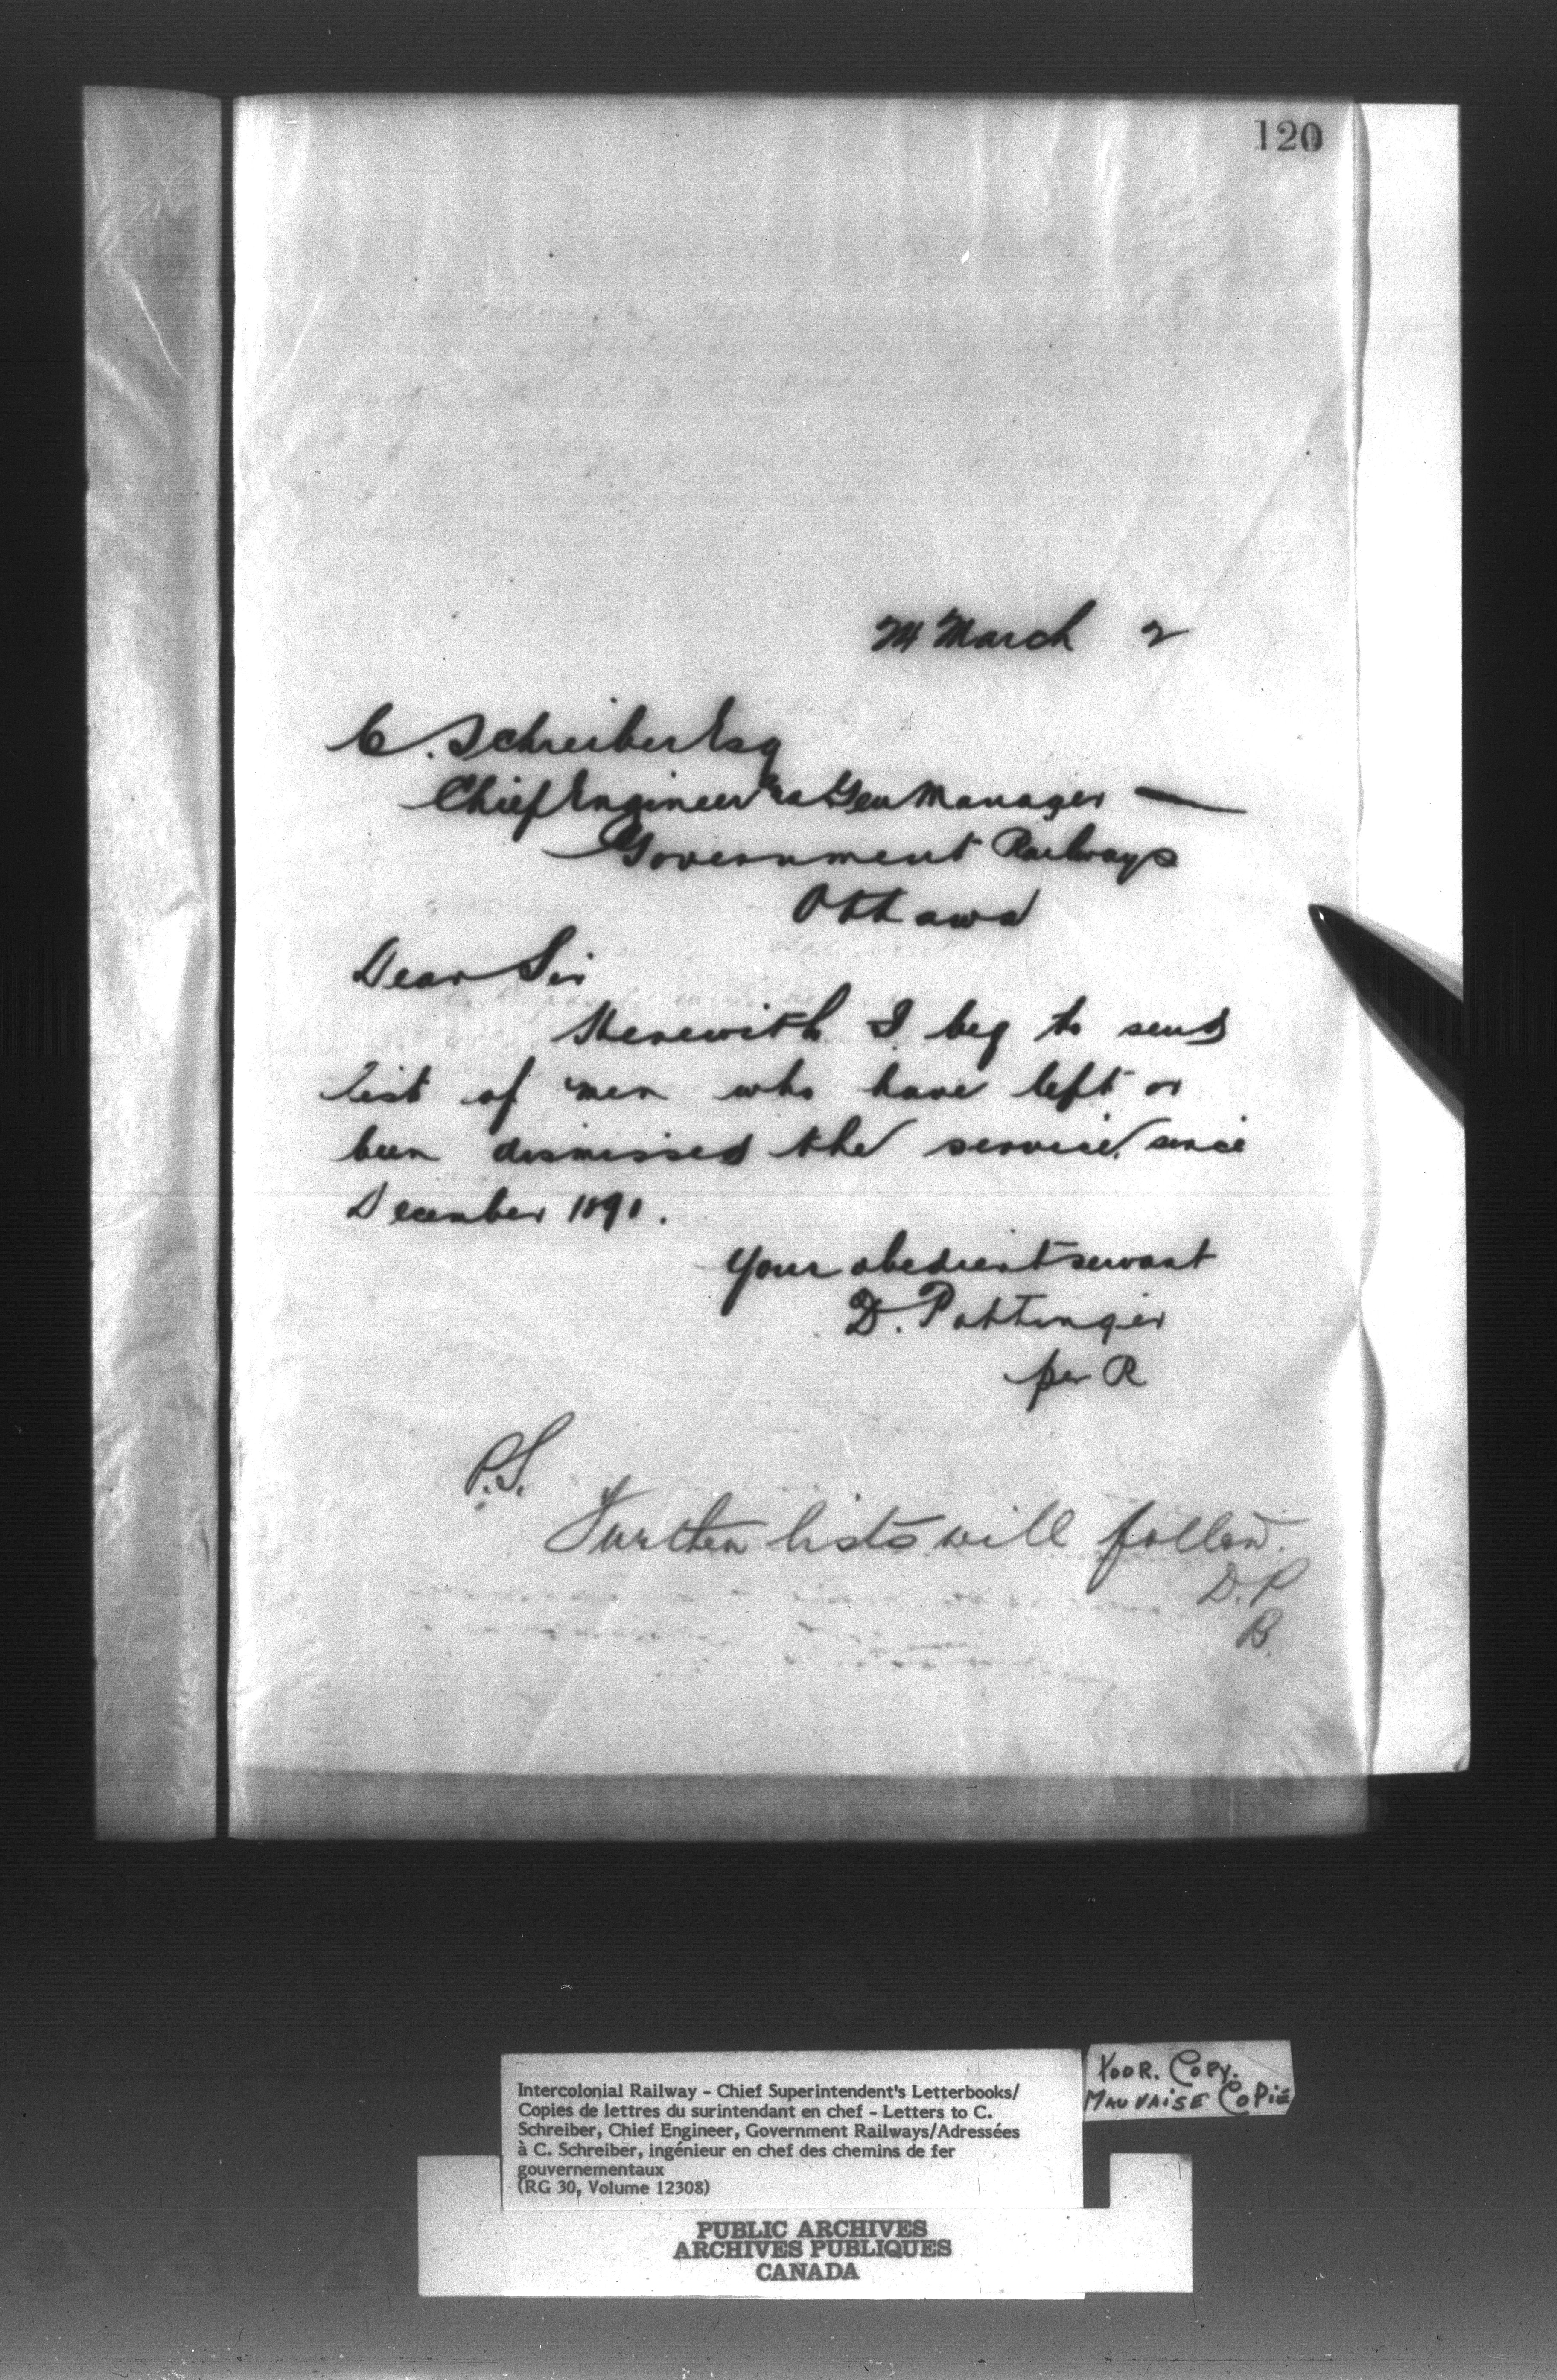 120
24 March 2
C. Schreiber Esq
Chief Engineer & Gen Manager
Government Railways
Ottawa
Dear Sir
Herewith I beg to send
list of men who have left or
been dismissed the service since
December 1890.
Your obedient servant
D. Pottinger
per R
P.S.
Further lists will follow.
D.P
B.
Intercolonial Railway - Chief Superintendent's Letterbooks/
Copies de lettres du surintendant en chef - Letters to C.
Schreiber, Chief Engineer, Government Railways/Adressées
à C. Schreiber, ingénieur en chef des chemins de fer
gouvernementaux
(RG 30, Volume 12308)
POOR. COPY.
MAUVAISE COPIE
PUBLIC ARCHIVES
ARCHIVES PUBLIQUES
CANADA